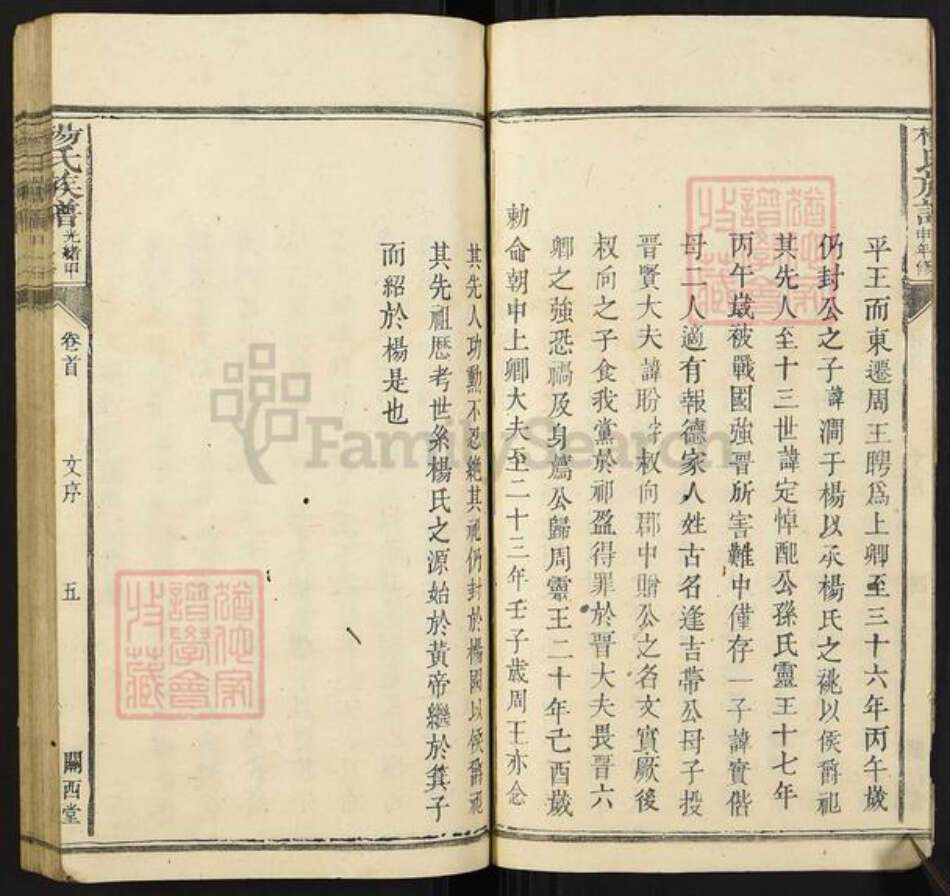 平王而東遷周王聘爲上卿至三十六年丙午歲
仍封公之子諱澗于楊以承楊氏之祧以侯爵祀
其先人至十三世諱定悼配公孫氏靈王十七年
丙午歲被戰國強晉所害難中僅存一子諱實偕
母二人適有報德家人姓古名逢吉帶公母子投
晉賢大夫諱肸字叔向郡中贈公之名文實厥後
叔向之子食我黨於祁盈得罪於晉大夫畏晉六
卿之強恐禍及身薦公歸周靈王二十年己酉歲
勅命朝中上卿大夫至二十三年壬子歲周王亦念
其先人功勳不忍絶其祀仍封於楊國以候爵祀
其先祖歴考世糸楊氏之源始於黃帝繼於箕子
而紹於楊是也
楊氏族譜 光緒甲
卷首
文序
五
關西堂
楊氏族譜 申年修
FamilySearch